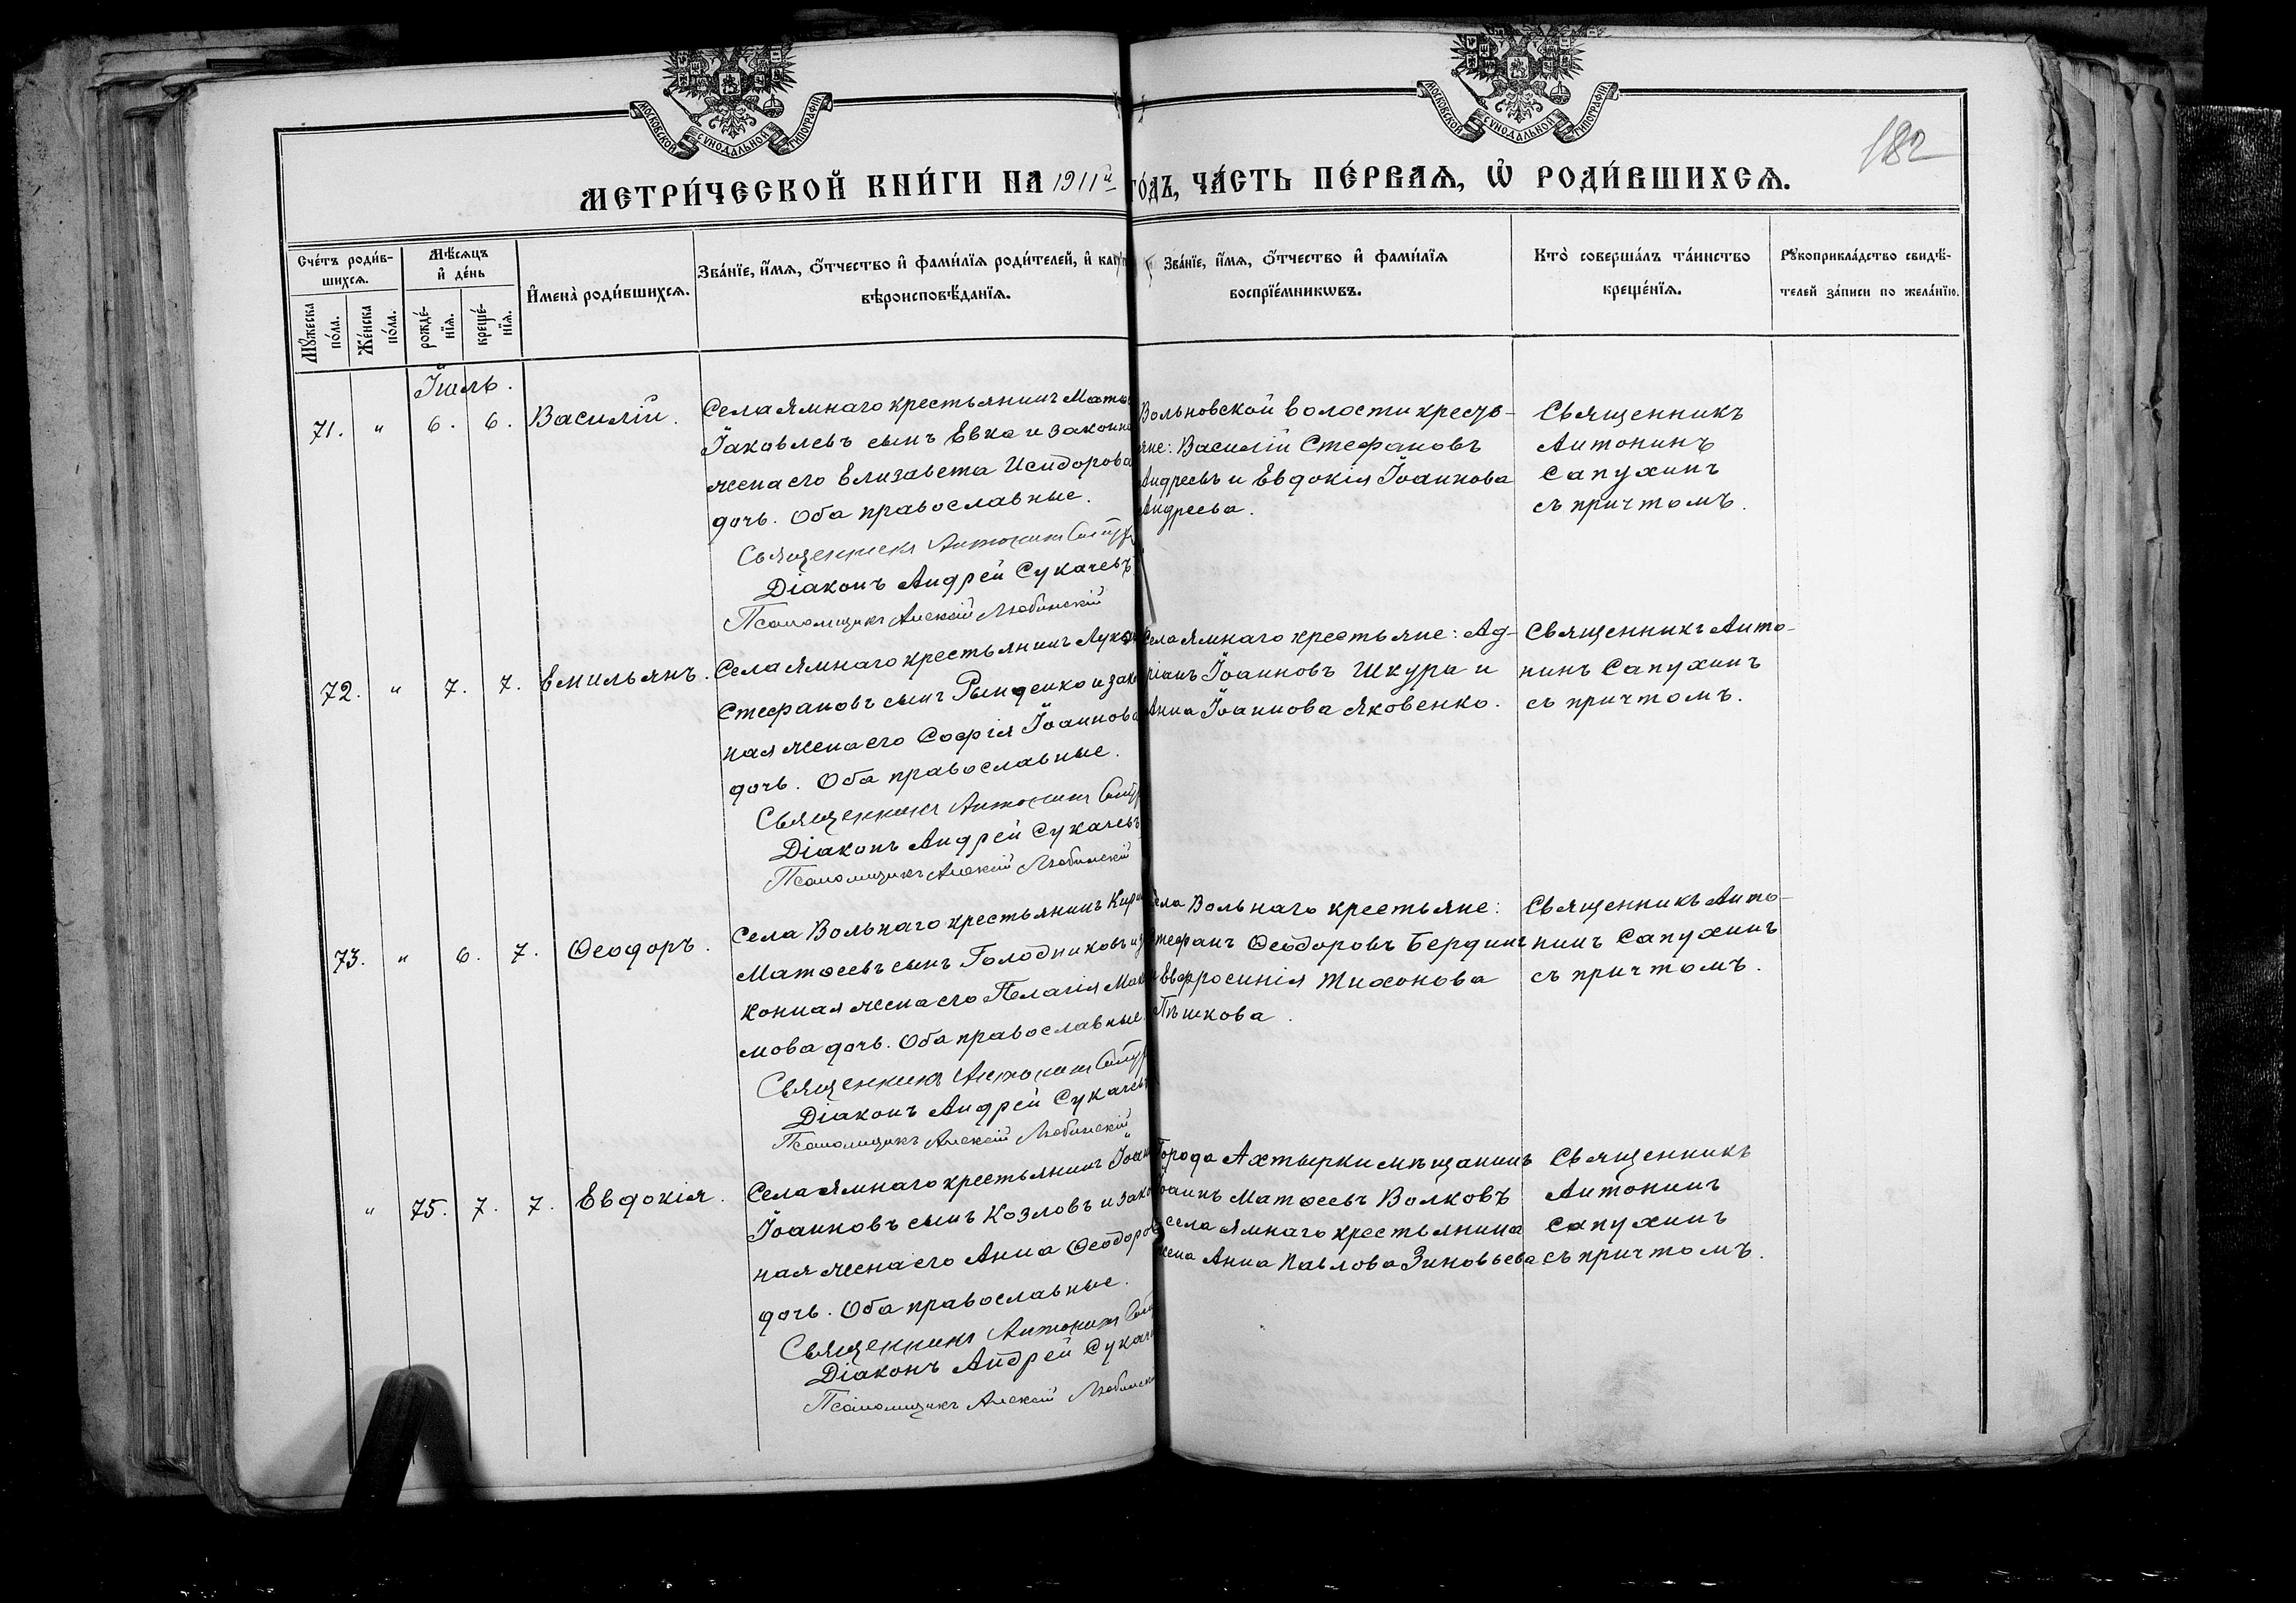 МОСКОВСКОЙ СУНОДАЛЬНОЙ ТИПОГРАФІИ
МОСКОВСКОЙ СУНОДАЛЬНОЙ ТИПОГРАФІИ
182
МЕТРИ́ЧЕСКОЙ КНИ́ГИ НА 1911й ГО́ДЪ, ЧА́СТЬ ПЕ́РВАѦ, Ѡ РОДИ́ВШИХСѦ.
Сче́тъ роди́в-
шихсѧ.
Мꙋ́жеска по́ла.
Же́нска по́ла.
Мѣ́сѧцъ
и҆ де́нь
рожде́-
нїѧ.
креще́-
нїѧ.
И҆мена̀ роди́вшихсѧ.
Зва́нїе, и҆́мѧ, ѻ҆́тчество и҆ фами́лїѧ роди́телей, и҆ как
вѣроисповѣ́данїѧ.
Зва́нїе, и҆́мѧ, ѻ҆́тчество и҆ фами́лїѧ
воспрїе́мникѡвъ.
Кто̀ соверша́лъ та́инство
креще́нїѧ.
Рꙋкоприкла́дство свидѣ́-
телей за́писи по жела́нїю.
Іюль.
71. " 6. 6. Василій.
Села Ямнаго крестьянинъ Матѳ
Іаковлевъ сынъ Евка и законна
жена его Елизавета Исидорова
дочь. Оба православные.
Священникъ Антонинъ Сапух
Діаконъ Андрей Сукачевъ
Псаломщикъ Алексій Любинскій
Вольновской волости кресть-
яне: Василій Стефановъ
Андреевъ и Евдокія Іоаннова
Андреева.
Священникъ
Антонинъ
Сапухинъ
съ причтомъ.
72. " 7. 7. Емильянъ.
Села Ямнаго крестьянинъ Лука
Стефановъ сынъ Рынденко и зако
ная жена его Софія Іоаннова
дочь. Оба православные.
Священникъ Антонинъ Сапух
Діаконъ Андрей Сукачевъ
Псаломщикъ Алексій Любинскій
Села Ямнаго крестьяне: Ад-
ріанъ Іоанновъ Шкура и
Анна Іоаннова Яковенко.
Священникъ Анто-
нинъ Сапухинъ
съ причтомъ.
73. " 6. 7. Ѳеодоръ.
Села Вольнаго крестьянинъ Кири
Матѳеевъ сынъ Голодниковъ и за
конная жена его Пелагія Макси
мова дочь. Оба православные.
Священникъ Антонинъ Сапух
Діаконъ Андрей Сукачевъ
Псаломщикъ Алексій Любинскій
Села Вольнаго крестьяне:
Стефанъ Ѳеодоровъ Бердинъ
и Евфросинія Тихонова
Пѣшкова.
Священникъ Анто-
нинъ Сапухинъ
съ причтомъ.
" 75. 7. 7. Евдокія.
Села Ямнаго крестьянинъ Іоан
Іоанновъ сынъ Козловъ и зако
ная жена его Анна Ѳеодоров
дочь. Оба православные.
Священникъ Антонинъ Сап
Діаконъ Андрей Сукаче
Псаломщикъ Алексій Любинскій
Города Ахтырки мѣщанинъ
Іоаннъ Матѳеевъ Волковъ
и села Ямнаго крестьянина
жена Анна Павлова Зиновьева
Священникъ
Антонинъ
Сапухинъ
съ причтомъ.